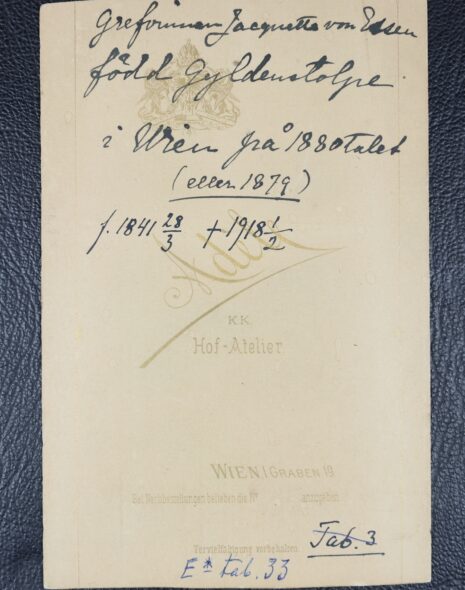 Grefvinnan Jacquette von Essen
född Gyldenstolpe
i Wien på 1880talet
(eller 1879)
f. 1841 28/3 + 1918 1/2
Adèle
K.K.
Hof-Atelier
WIEN I GRABEN 19
Bei Nachbestellungen belieben die Nr. anzugeben
Vervielfältigung vorbehalten
Tab. 3
E* tab. 33